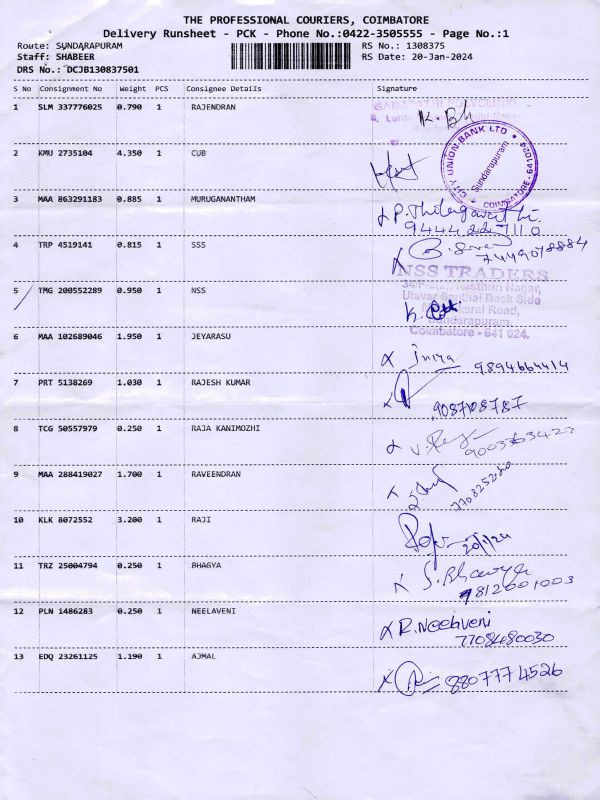 THE PROFESSIONAL COURIERS, COIMBATORE
Delivery Runsheet - PCK - Phone No.:0422-3505555 - Page No.:1
Route: SUNDARAPURAM RS No.: 1308375
Staff: SHABEER RS Date: 20-Jan-2024
DRS No.: DCJB130837501
S No Consignment No Weight PCS Consignee Details Signature
1 SLM 337776025 0.790 1 RAJENDRAN
K. Bh
2 KMU 2735104 4.350 1 CUB
CITY UNION BANK LTD
Sundarapuram
COIMBATORE - 641024
3 MAA 863291183 0.885 1 MURUGANANTHAM
9444 7110
4 TRP 4519141 0.815 1 SSS
7449078884
5 TMG 200552289 0.950 1 NSS
NSS TRADERS
Nagar,
Back Side
Road,
Sundarapuram,
Coimbatore - 641 024.
6 MAA 102689046 1.950 1 JEYARASU
9894664414
7 PRT 5138269 1.030 1 RAJESH KUMAR
9087108787
8 TCG 50557979 0.250 1 RAJA KANIMOZHI
9 MAA 288419027 1.700 1 RAVEENDRAN
10 KLK 8072552 3.200 1 RAJI
20/1/24
11 TRZ 25004794 0.250 1 BHAGYA
S. Bhavya
9812001003
12 PLN 1486283 0.250 1 NEELAVENI
R. Neelaveni
7708480030
13 EDQ 23261125 1.190 1 AJMAL
8807774526